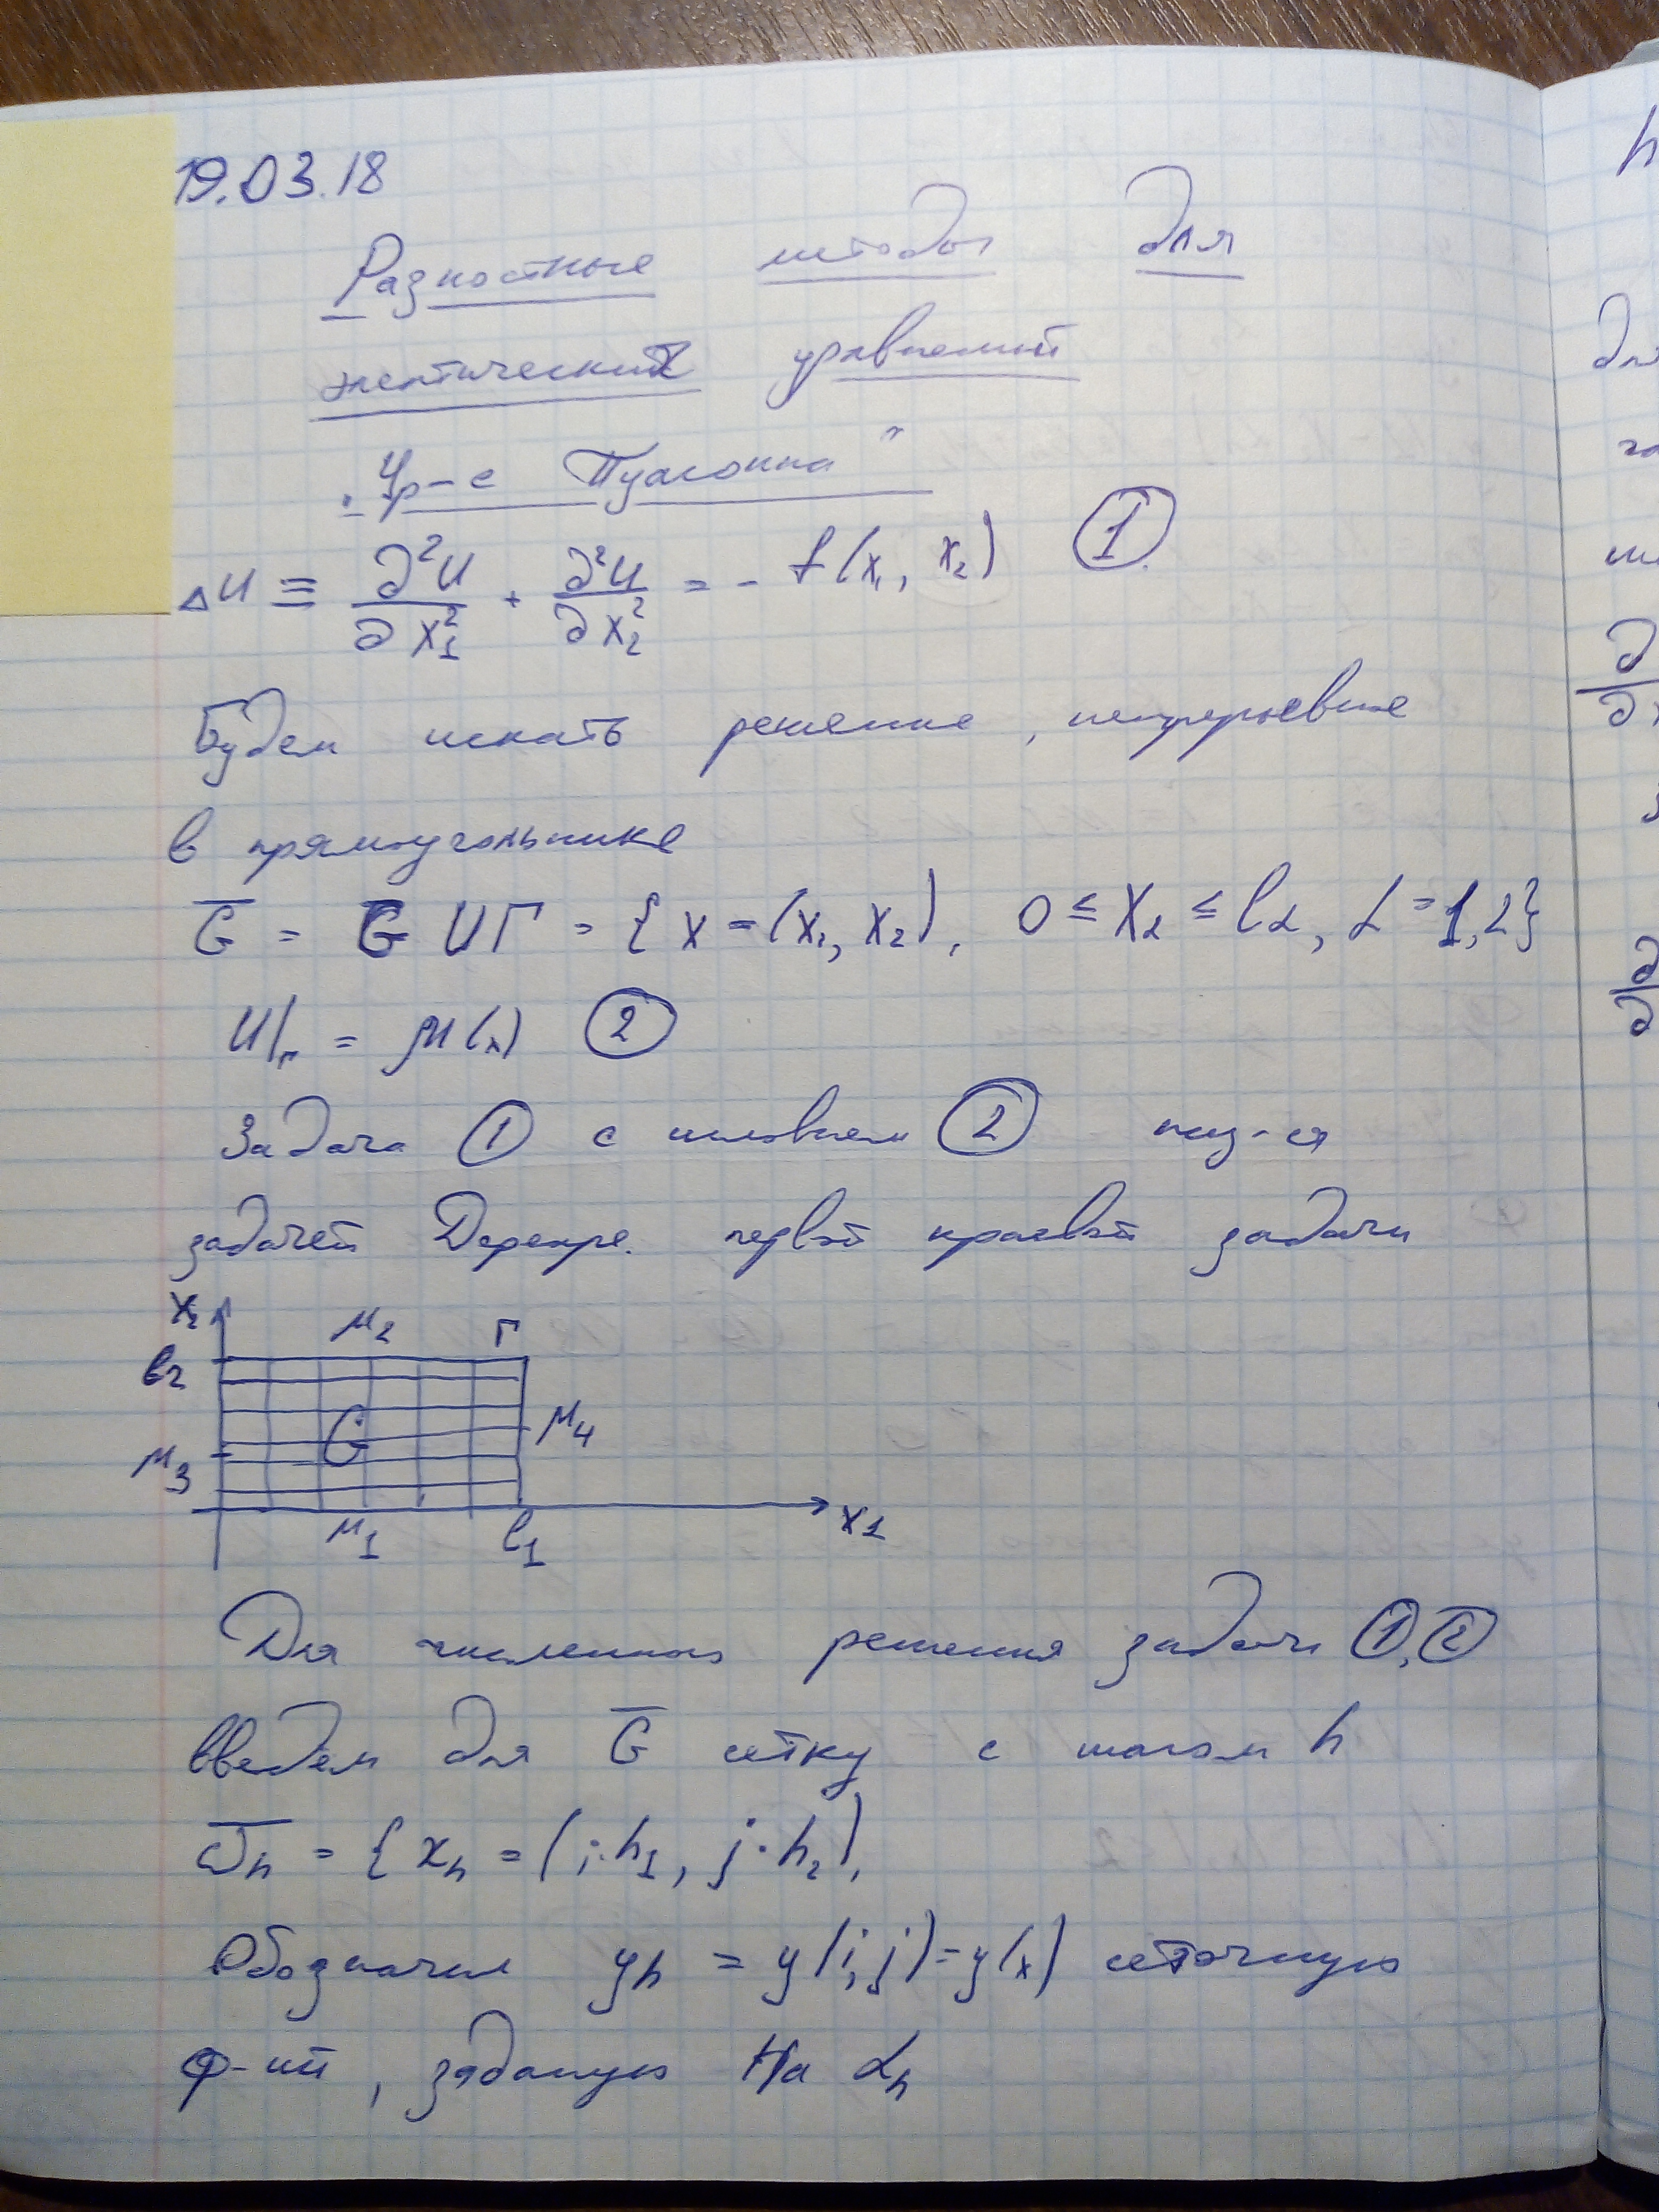 19.03.18
Разностные методы для
элептических уравнений
„Ур-е Пуассонна"
Δu ≡ ∂²u/∂x₁² + ∂²u/∂x₂² = - f(x₁, x₂) ①
Будем искать решение, непрерывное
в прямоугольнике
G̅ = G ∪ Γ = { x = (x₁, x₂), 0 ≤ x₂ ≤ l_α, α = 1,2}
u|_Γ = μ(x) ②
Задача ① с условием ② наз-ся
задачей первой краевой задачи
x₂
μ₂ Γ
l₂
G μ₄
μ₃
μ₁ l₁ x₁
Для численного решения задачи ①,②
введем для G̅ сетку с шагом h
ω̅_h = { x_h = (i·h₁, j·h₂),
Обозначим y_h = y(i,j) = y(x) сеточную
ф-ий, заданую на α_h
h
для
∂
∂
∂